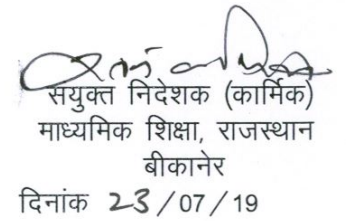 सयुक्त निदेशक (कार्मिक)
माध्यमिक शिक्षा, राजस्थान
बीकानेर
दिनांक 23/07/19